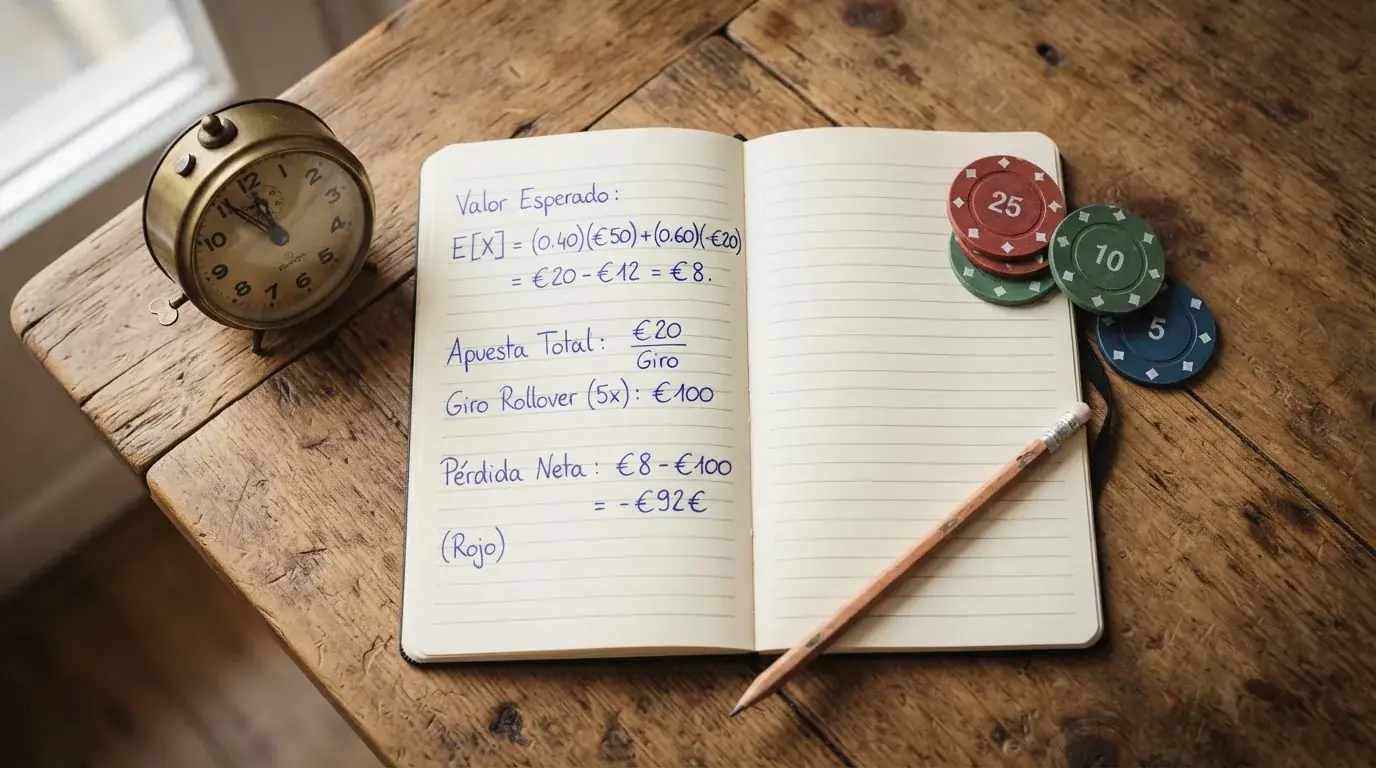 Valor Esperado:
E[X] = (0.40)(€50)+(0.60)(-€20)
= €20 - €12 = €8.
Apuesta Total: €20
Giro
Giro Rollover (5x): €100
Pérdida Neta: €8 - €100
= -€92€
(Rojo)
25
10
5
12
1
2
3
4
5
6
7
8
9
10